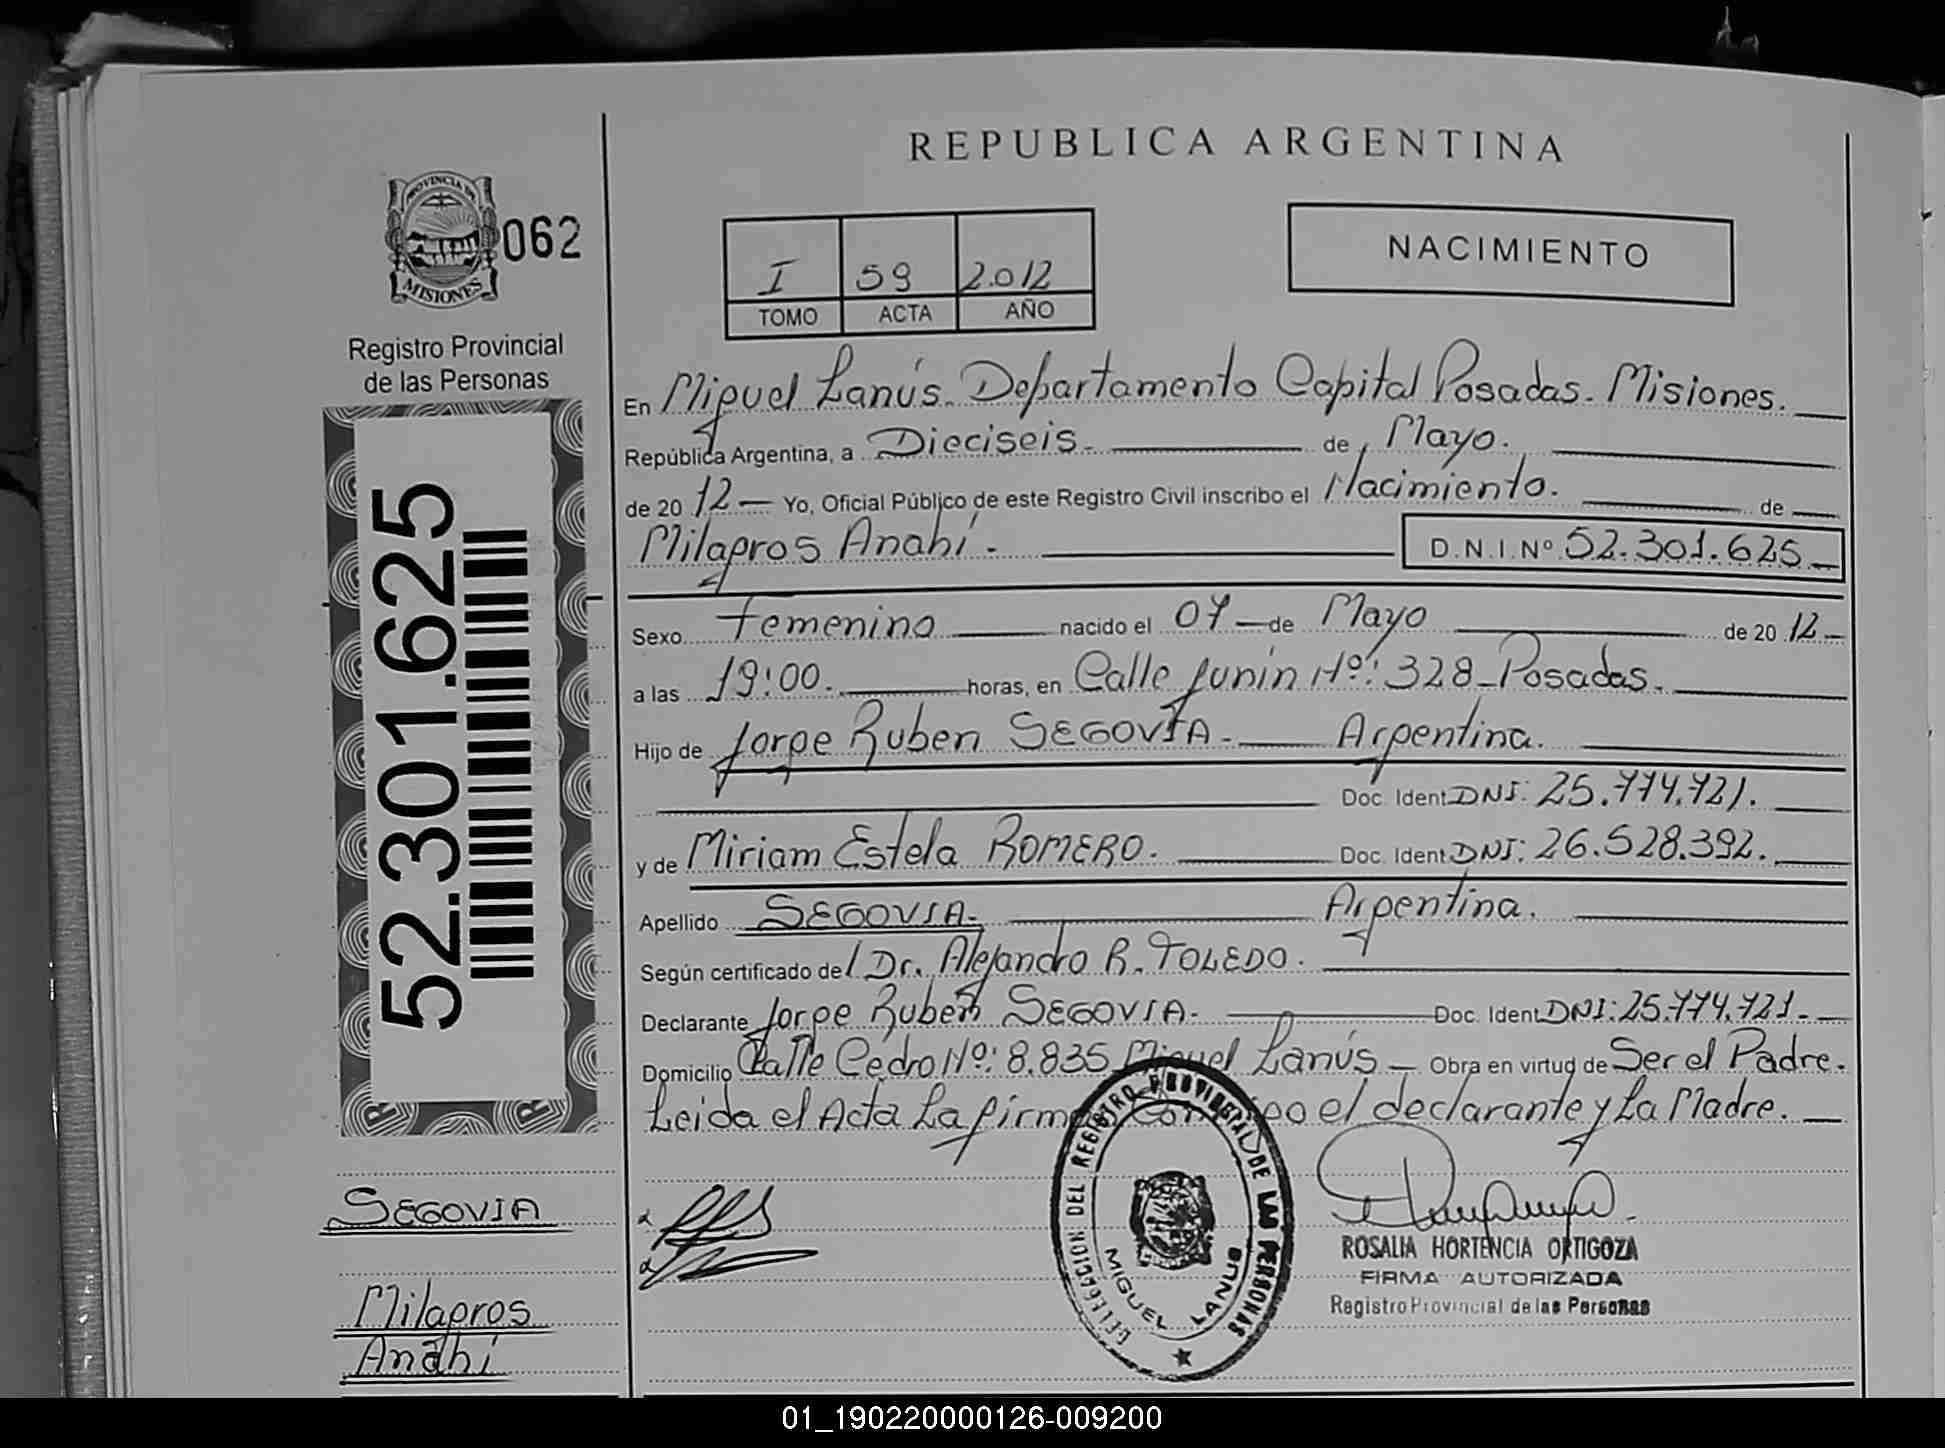 REPUBLICA ARGENTINA
PROVINCIA DE
MISIONES
062
Registro Provincial
de las Personas
I 59 2.012
TOMO ACTA AÑO
NACIMIENTO
En Miguel Lanús. Departamento Capital Posadas. Misiones.
República Argentina, a Dieciseis. de Mayo.
de 20 12 Yo, Oficial Público de este Registro Civil inscribo el Nacimiento. de
Milagros Anahí. D.N.I. Nº 52.301.625
Sexo Femenino nacido el 07 de Mayo de 20 12
a las 19:00. horas, en Calle Junín Nº: 328 Posadas.
Hijo de Jorge Ruben SEGOVIA. Argentina.
Doc. Ident DNI: 25.774.721.
y de Miriam Estela ROMERO. Doc. Ident DNI: 26.528.392.
Apellido SEGOVIA. Argentina.
Según certificado del Dr. Alejandro R. TOLEDO.
Declarante Jorge Ruben SEGOVIA. Doc. Ident DNI: 25.774.721.
Domicilio Calle Cedro Nº: 8.835 Miguel Lanús Obra en virtud de Ser el Padre.
Leida el Acta La firman conmigo el declarante y La Madre.
52.301.625
SEGOVIA
Milagros
Anahí
DELEGACION DEL REGISTRO PROVINCIAL DE LAS PERSONAS
MIGUEL LANUS
ROSALIA HORTENCIA ORTIGOZA
FIRMA AUTORIZADA
Registro Provincial de las Personas
01_190220000126-009200